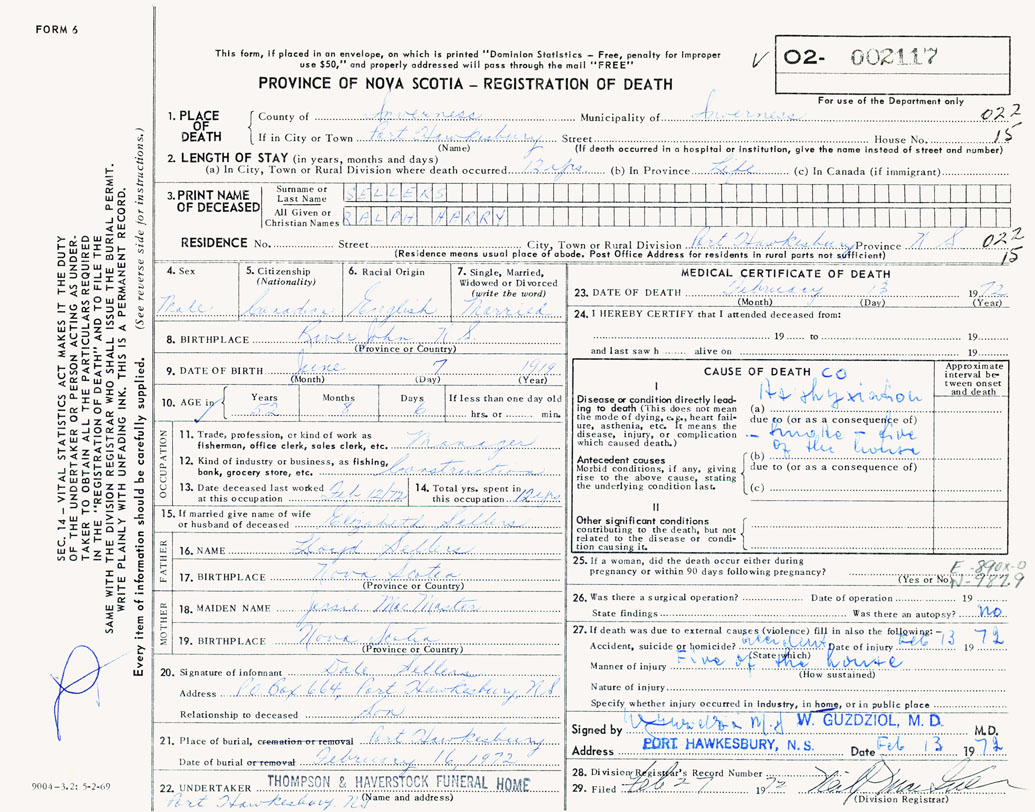 FORM 6
This form, if placed in an envelope, on which is printed "Dominion Statistics – Free, penalty for improper
use $50," and properly addressed will pass through the mail "FREE"
PROVINCE OF NOVA SCOTIA – REGISTRATION OF DEATH
O2- 002117
For use of the Department only
SEC. 14 – VITAL STATISTICS ACT MAKES IT THE DUTY
OF THE UNDERTAKER OR PERSON ACTING AS UNDER-
TAKER TO OBTAIN ALL THE PARTICULARS REQUIRED
IN THE "REGISTRATION OF DEATH" AND TO FILE THE
SAME WITH THE DIVISION REGISTRAR WHO SHALL ISSUE THE BURIAL PERMIT.
WRITE PLAINLY WITH UNFADING INK. THIS IS A PERMANENT RECORD.
Every item of information should be carefully supplied. (See reverse side for instructions.)
1. PLACE OF DEATH
County of Inverness Municipality of Inverness 022
If in City or Town Port Hawkesbury Street House No. 15
(Name) (If death occurred in a hospital or institution, give the name instead of street and number)
2. LENGTH OF STAY (in years, months and days)
(a) In City, Town or Rural Division where death occurred 12 yrs (b) In Province Life (c) In Canada (if immigrant)
3. PRINT NAME OF DECEASED
Surname or Last Name SELLERS
All Given or Christian Names RALPH HARRY
RESIDENCE No. Street City, Town or Rural Division Port Hawkesbury Province N S 022
(Residence means usual place of abode. Post Office Address for residents in rural parts not sufficient) 15
4. Sex Male
5. Citizenship (Nationality) Canadian
6. Racial Origin English
7. Single, Married, Widowed or Divorced (write the word) Married
8. BIRTHPLACE River John N S
(Province or Country)
9. DATE OF BIRTH June 7 1919
(Month) (Day) (Year)
10. AGE in Years 52 Months 8 Days 6 If less than one day old hrs. or min.
OCCUPATION
11. Trade, profession, or kind of work as fisherman, office clerk, sales clerk, etc. Manager
12. Kind of industry or business, as fishing, bank, grocery store, etc. Construction
13. Date deceased last worked at this occupation Feb 12/72 14. Total yrs. spent in this occupation 12 yrs
15. If married give name of wife or husband of deceased Elizabeth Sellers
FATHER
16. NAME Lloyd Sellers
17. BIRTHPLACE Nova Scotia
(Province or Country)
MOTHER
18. MAIDEN NAME Jessie MacMaster
19. BIRTHPLACE Nova Scotia
(Province or Country)
20. Signature of informant Dale Sellers
Address PO Box 664, Port Hawkesbury, N.S
Relationship to deceased Son
21. Place of burial, cremation or removal Port Hawkesbury
Date of burial or removal February 16, 1972
22. UNDERTAKER THOMPSON & HAVERSTOCK FUNERAL HOME
Port Hawkesbury, NS (Name and address)
9004-3.2: 5-2-69
MEDICAL CERTIFICATE OF DEATH
23. DATE OF DEATH February 13 1972
(Month) (Day) (Year)
24. I HEREBY CERTIFY that I attended deceased from:
19 to 19
and last saw h alive on 19
CAUSE OF DEATH CO
Approximate interval between onset and death
I
Disease or condition directly leading to death (This does not mean the mode of dying, e.g., heart failure, asthenia, etc. It means the disease, injury, or complication which caused death.)
(a) Asphyxiation
due to (or as a consequence of)
- smoke - fire
(b) of the house
Antecedent causes
Morbid conditions, if any, giving rise to the above cause, stating the underlying condition last.
due to (or as a consequence of)
(c)
II
Other significant conditions contributing to the death, but not related to the disease or condition causing it.
25. If a woman, did the death occur either during pregnancy or within 90 days following pregnancy? (Yes or No)
E-890X-0
N-987.9
26. Was there a surgical operation? Date of operation 19
State findings Was there an autopsy? No
27. If death was due to external causes (violence) fill in also the following:–
Accident, suicide or homicide? accident Date of injury Feb 13 1972
(State which)
Manner of injury Fire of the house
(How sustained)
Nature of injury
Specify whether injury occurred in industry, in home, or in public place
Signed by W. GUZDZIOL, M. D. M.D.
Address PORT HAWKESBURY, N. S. Date Feb 13 1972
28. Division Registrar's Record Number
29. Filed Feb 27 1972
(Division Registrar)